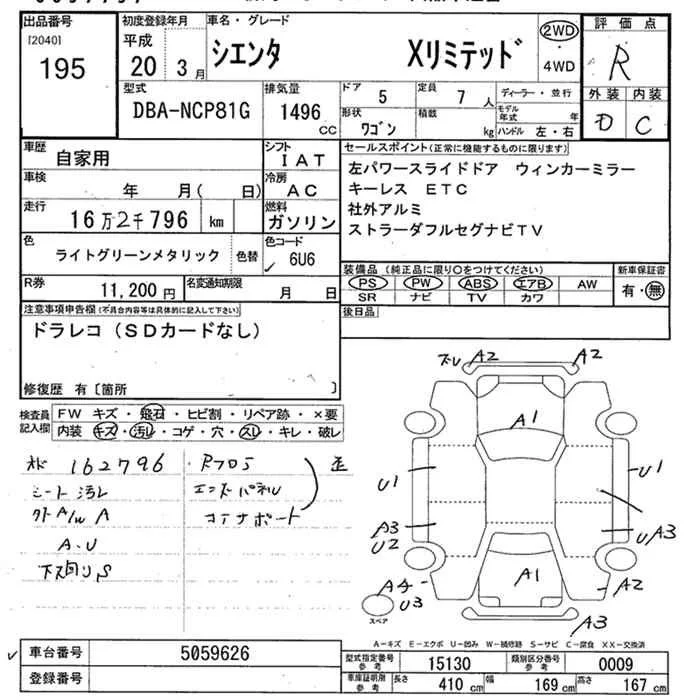 出品番号
[2040]
195
初度登録年月
平成
20年 3月
車名・グレード
シエンタ Xリミテッド
2WD
・
4WD
評価点
R
外装 内装
D C
型式
DBA-NCP81G
排気量
1496
CC
ドア 5
定員 7 人
形状 ワゴン
積載 kg
ディーラー・並行
モデル年式 年
ハンドル 左・右
車歴
自家用
シフト
IAT
車検
年 月( 日)
冷房
AC
走行
16万2千796 km
燃料
ガソリン
色
ライトグリーンメタリック 色替
色コード
6U6
R券
11,200円
名変通知期限
月 日
セールスポイント(正常に機能するものに限ります)
左パワースライドドア ウィンカーミラー
キーレス ETC
社外アルミ
ストラーダフルセグナビTV
装備品(純正品に限り○をつけてください)
PS PW ABS エアB AW
SR ナビ TV カワ
新車保証書
有・無
後日品
注意事項申告欄(不具合内容等は具体的に記入して下さい)
ドラレコ(SDカードなし)
修復歴 有〔箇所 〕
検査員
記入欄
FW キズ・飛石・ヒビ割・リペア跡・×要
内装 キズ・汚レ・コゲ・穴・スレ・キレ・破レ
162796
シート汚レ
A/W A
A.U
下廻りS
エンドパネル
コーナーボード
A2
A2
A1
U1
U1
A3
U2
UA3
A1
A4
U3
A2
A3
スペア
A−キズ E−エクボ U−凹み W−補修跡 S−サビ C−腐食 XX−交換済
車台番号
5059626
登録番号
型式指定番号
参考
15130
類別区分番号
参考
0009
車庫証明用
参考
長さ 410 cm
幅 169 cm
高さ 167 cm